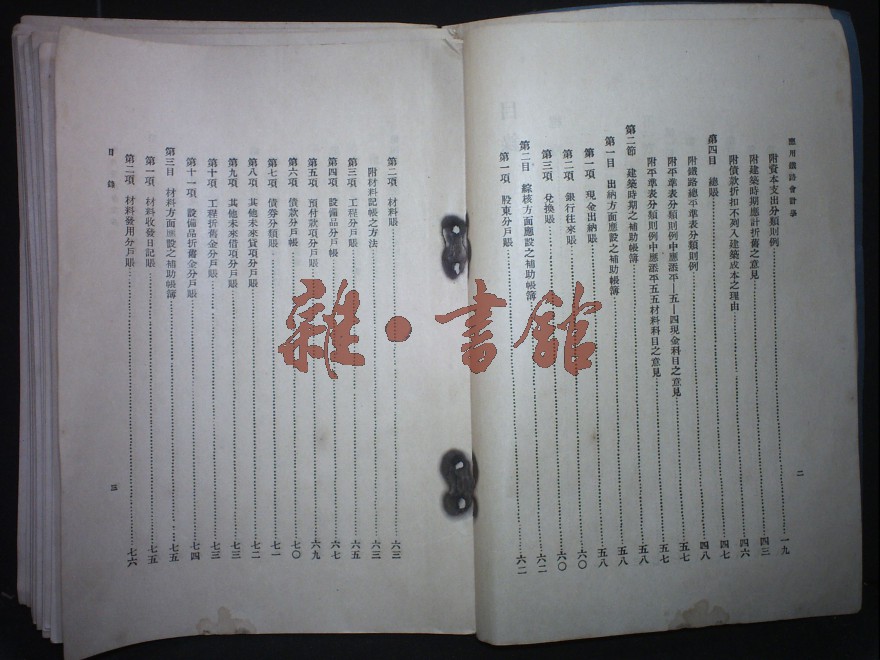 應用鐵路會計學
附資本支出分類則例 一九
附建築時期應計折舊之意見 四三
附債款折扣不列入建築成本之理由 四六
第四目 總賬 四七
附鐵路總平準表分類則例 四八
附平準表分類則例中應添平—五—四現金科目之意見 五七
附平準表分類則例中應添平五五材料科目之意見 五七
第二節 建築時期之補助帳簿 五八
第一目 出納方面應設之補助帳簿 五八
第一項 現金出納賬 五八
第二項 銀行往來賬 六〇
第三項 兌換賬 六二
第二目 綜核方面應設之補助帳簿 六二
第一項 股東分戶賬 六二
二
第二項 材料賬 六三
附材料記帳之方法 六三
第三項 工程分戶賬 六五
第四項 設備品分戶帳 六七
第五項 預付款項分戶賬 六九
第六項 債款分戶帳 七〇
第七項 債券分類賬 七一
第八項 其他未來貸項分戶賬 七二
第九項 其他未來借項分戶賬 七三
第十項 工程折舊金分戶賬 七三
第十一項 設備品折舊金分戶賬 七四
第三目 材料方面應設之補助帳簿 七五
第一項 材料收發日記賬 七五
第二項 材料發用分戶賬 七六
目錄
三
雜·書館